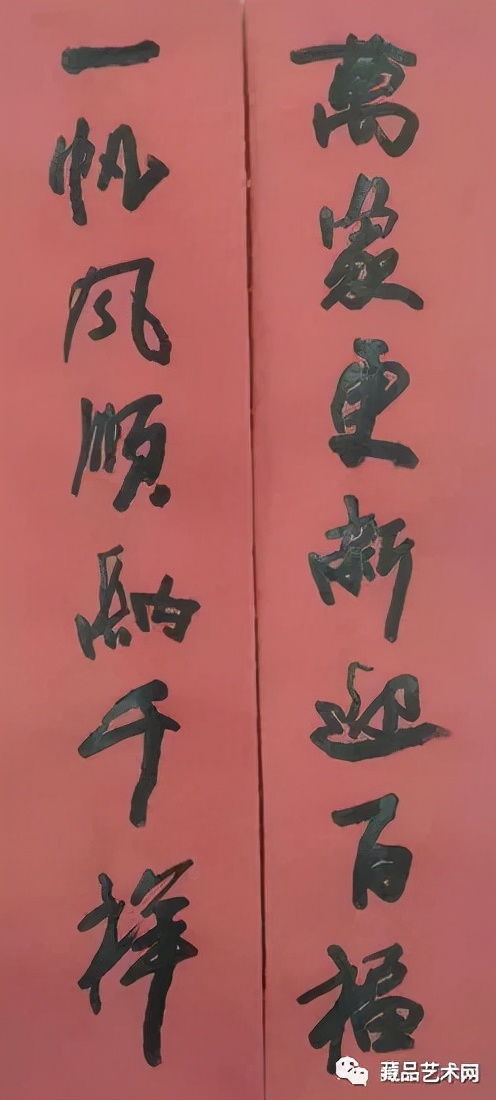 萬家更新迎百福
一帆風順納千祥
藏品艺术网